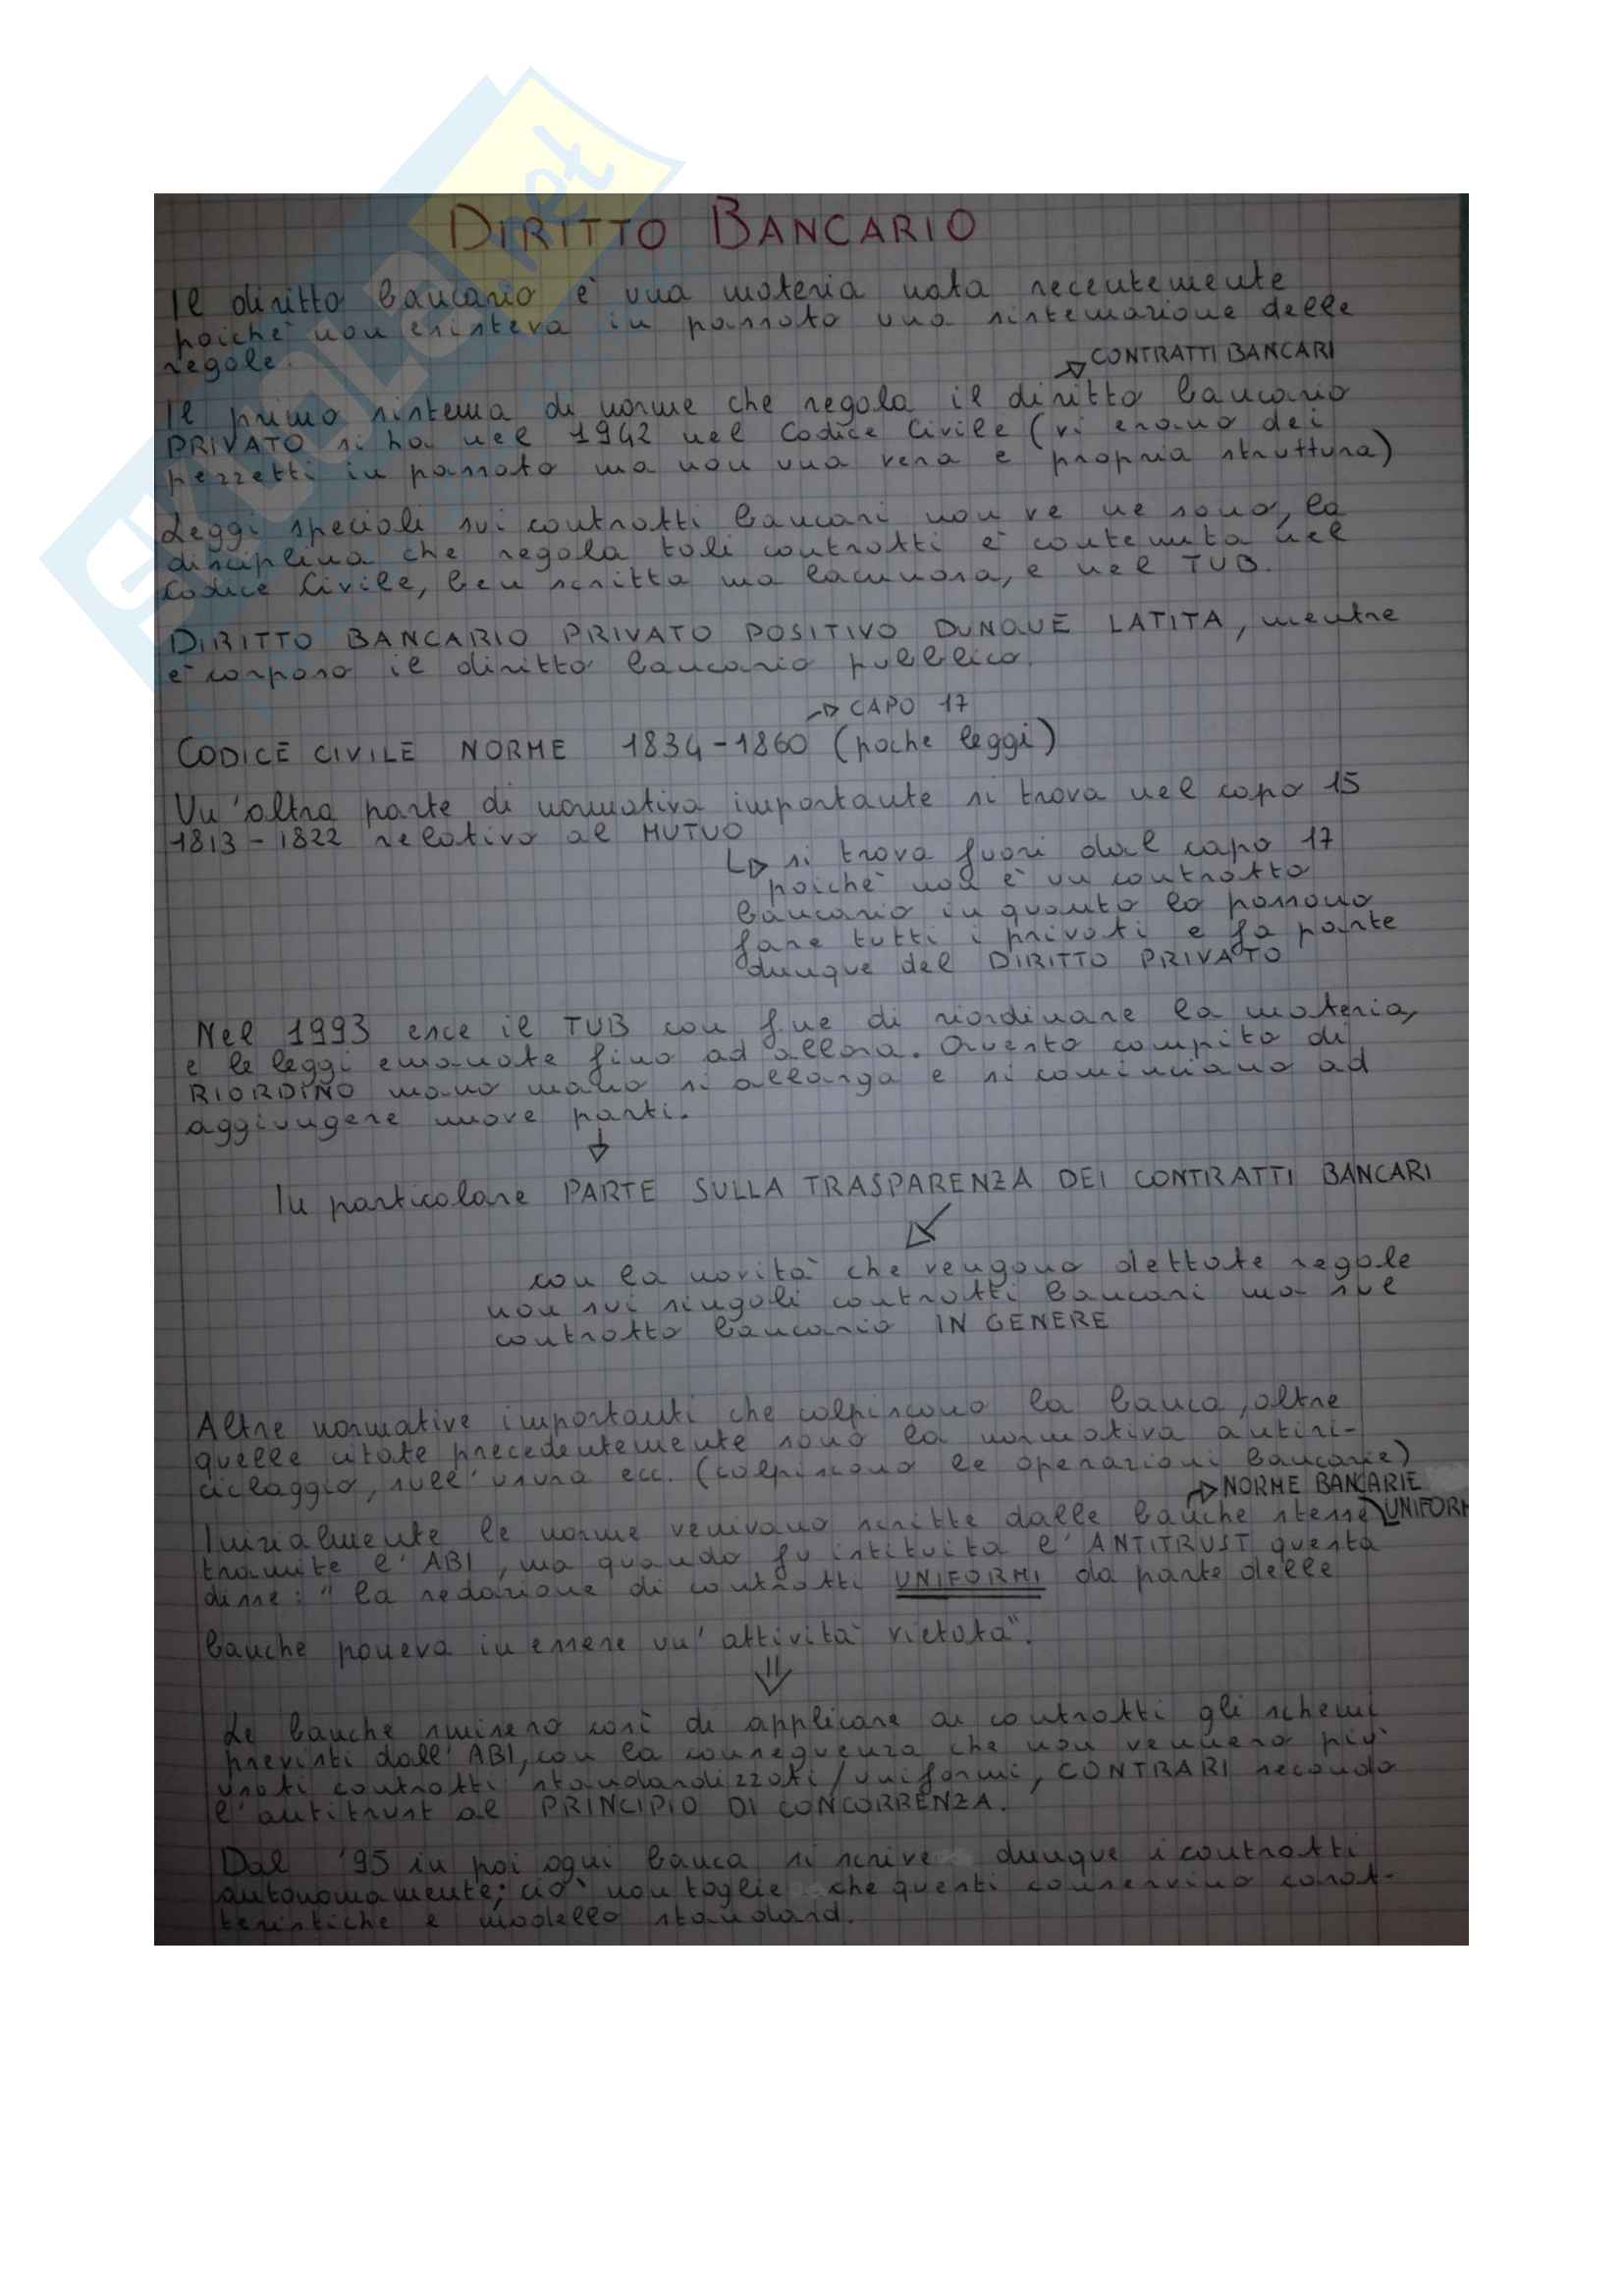 DIRITTO BANCARIO
Il diritto bancario è una materia nata recentemente
poichè non esisteva in passato una sistemazione delle
regole.
CONTRATTI BANCARI
Il primo sistema di norme che regola il diritto bancario
PRIVATO si ha nel 1942 nel Codice Civile (vi erano dei
pezzetti in passato ma non una vera e propria struttura)
Leggi speciali sui contratti bancari non ve ne sono, la
disciplina che regola tali contratti è contenuta nel
Codice Civile, ben scritta ma lacunosa, e nel TUB.
DIRITTO BANCARIO PRIVATO POSITIVO DUNQUE LATITA, mentre
è corposo il diritto bancario pubblico.
CAPO 17
CODICE CIVILE NORME 1834-1860 (poche leggi)
Un'altra parte di normativa importante si trova nel capo 15
1813-1822 relativo al MUTUO
si trova fuori dal capo 17
poichè non è un contratto
bancario in quanto lo possono
fare tutti i privati e fa parte
dunque del DIRITTO PRIVATO
Nel 1993 esce il TUB con fine di riordinare la materia,
e le leggi emanate fino ad allora. Questo compito di
RIORDINO mano mano si allarga e si cominciano ad
aggiungere nuove parti.
In particolare PARTE SULLA TRASPARENZA DEI CONTRATTI BANCARI
con la novità che vengono dettate regole
non sui singoli contratti bancari ma sul
contratto bancario IN GENERE
Altre normative importanti che colpiscono la banca, oltre
quelle citate precedentemente sono la normativa antiri-
ciclaggio, sull'usura ecc. (colpiscono le operazioni bancarie)
NORME BANCARIE
Inizialmente le norme venivano scritte dalle banche stesse UNIFORM
tramite l'ABI, ma quando fu istituita l'ANTITRUST questa
disse: "la redazione di contratti UNIFORMI da parte delle
banche poneva in essere un'attività vietata".
Le banche smisero così di applicare ai contratti gli schemi
previsti dall'ABI, con la conseguenza che non vennero più
usati contratti standardizzati/uniformi, CONTRARI secondo
l'antitrust al PRINCIPIO DI CONCORRENZA.
Dal '95 in poi ogni banca si scrive dunque i contratti
autonomamente; ciò non toglie che questi conservino carat-
teristiche e modello standard.